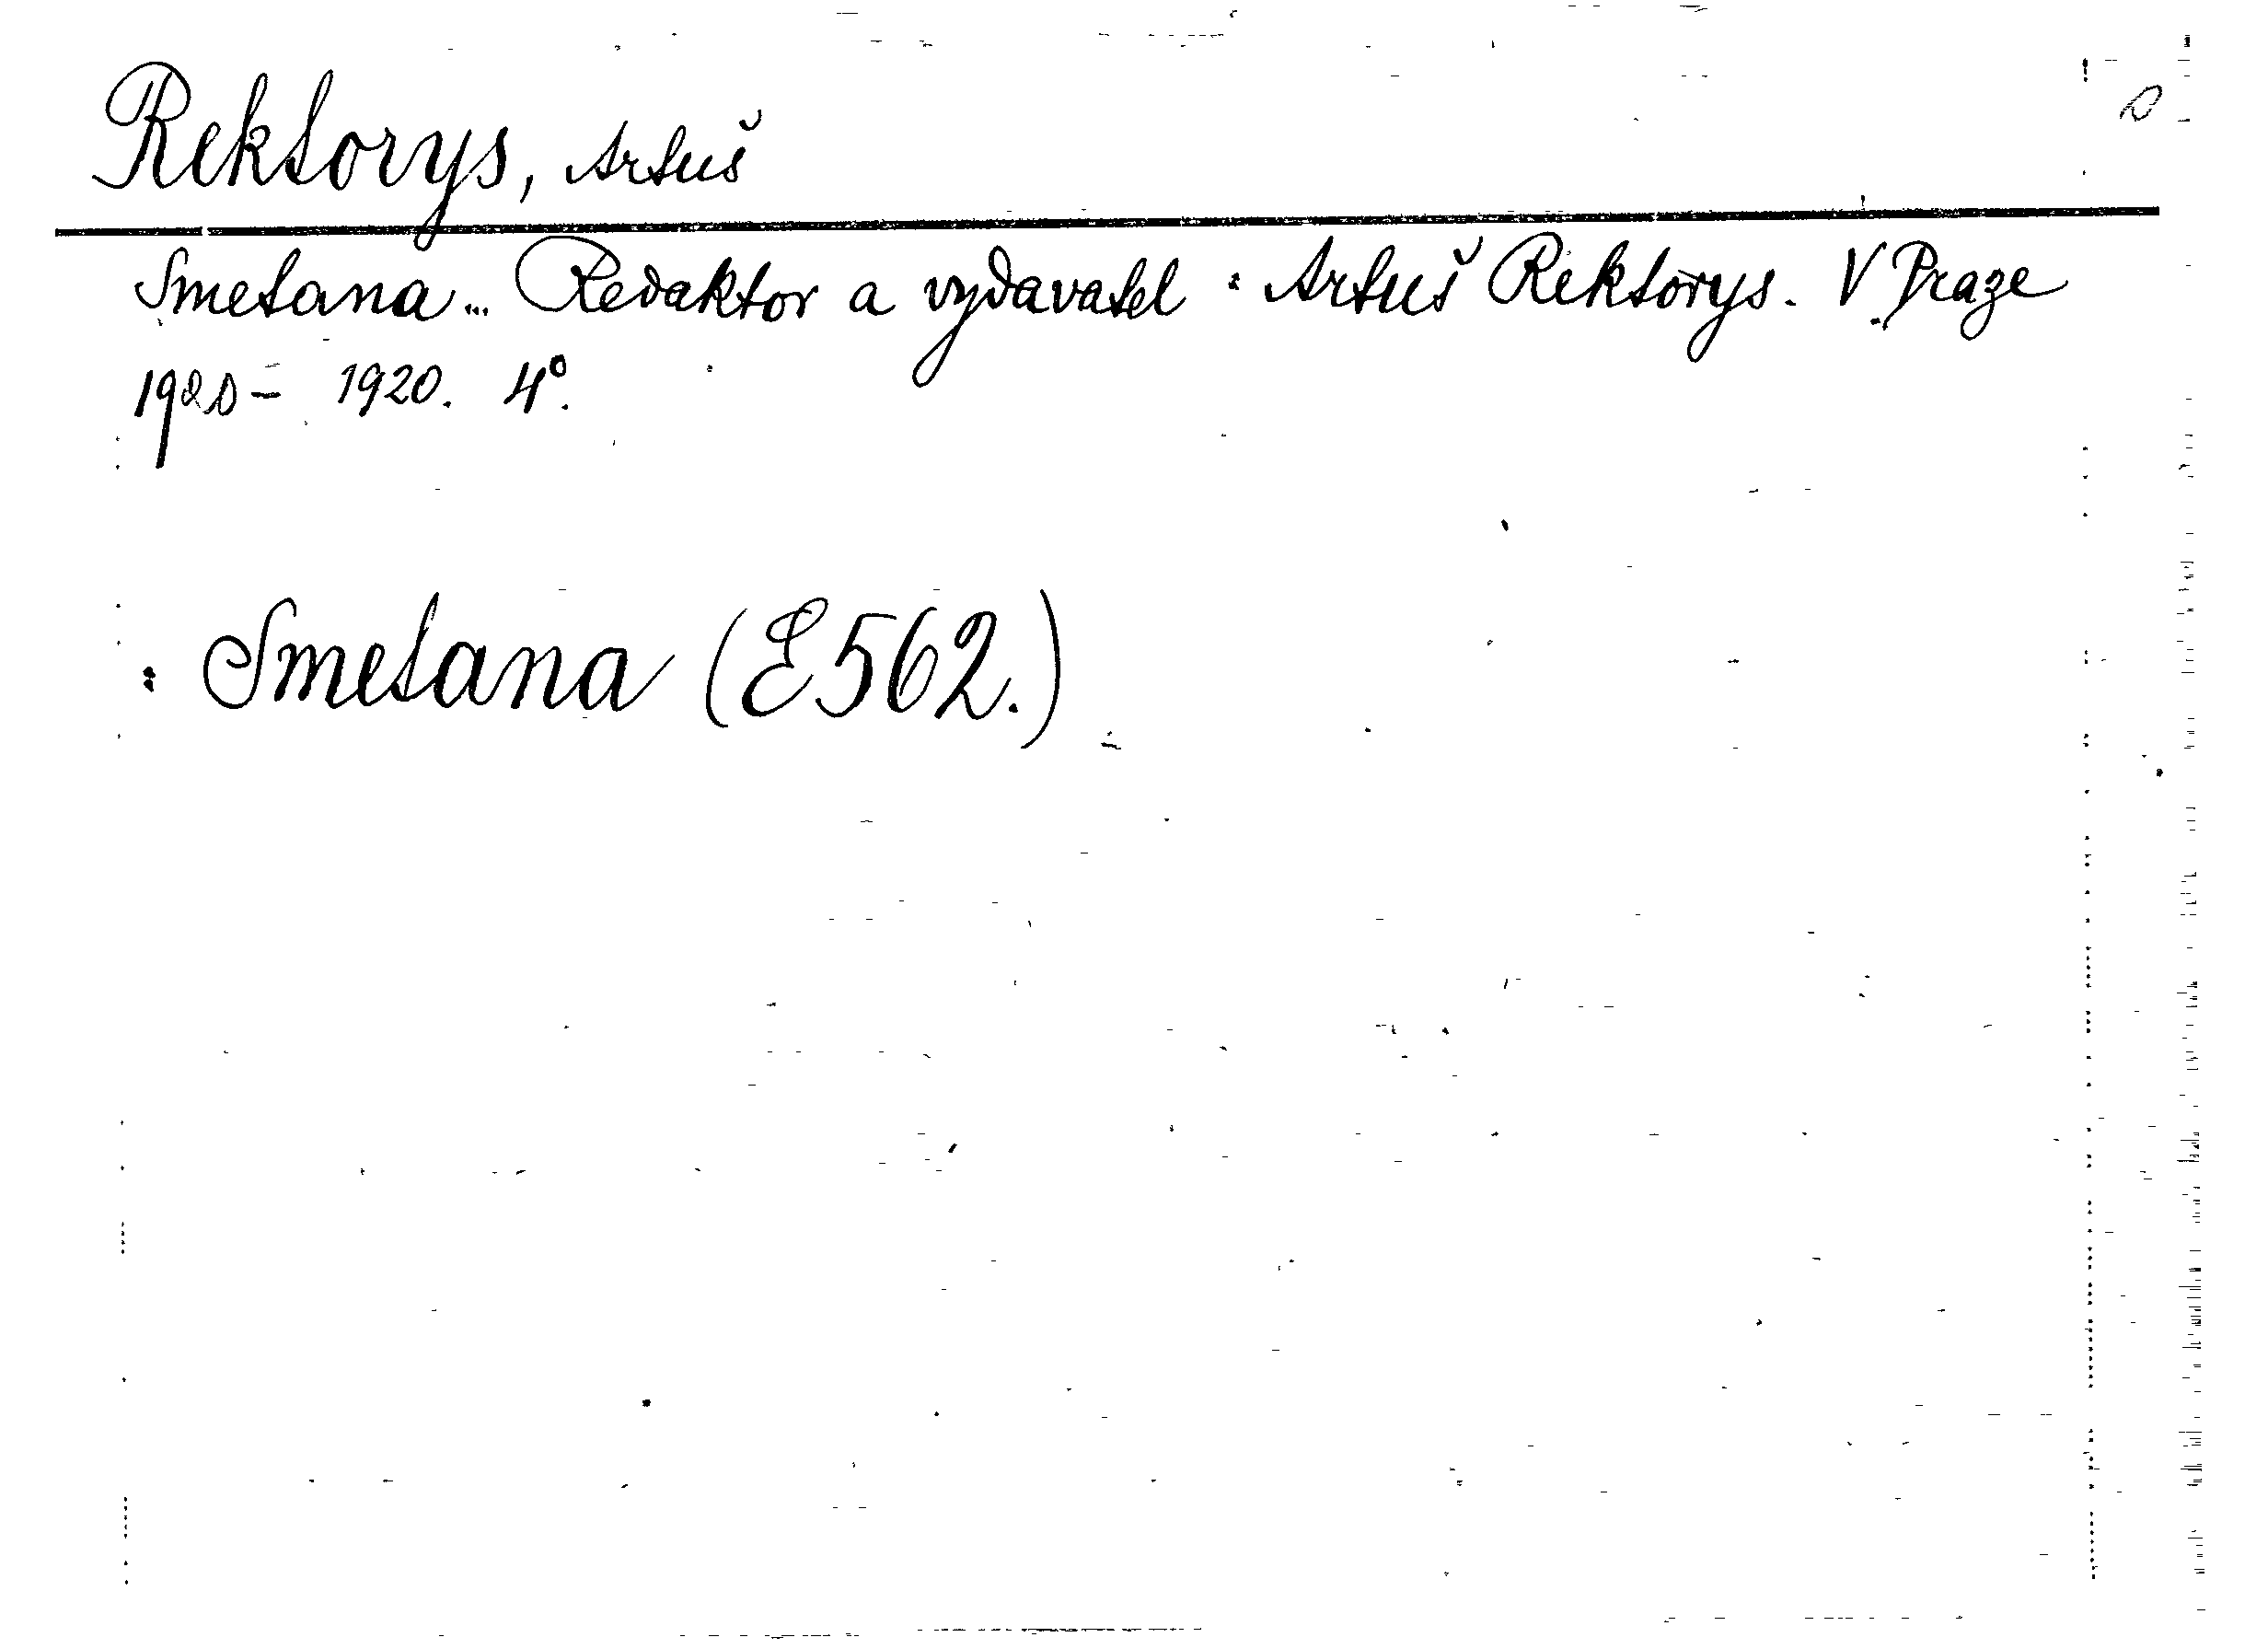 Rektorys, Artuš
Smetana... Redaktor a vydavatel: Artuš Rektorys. V Praze
1920 - 1920. 4°.
: Smetana (E 562.)